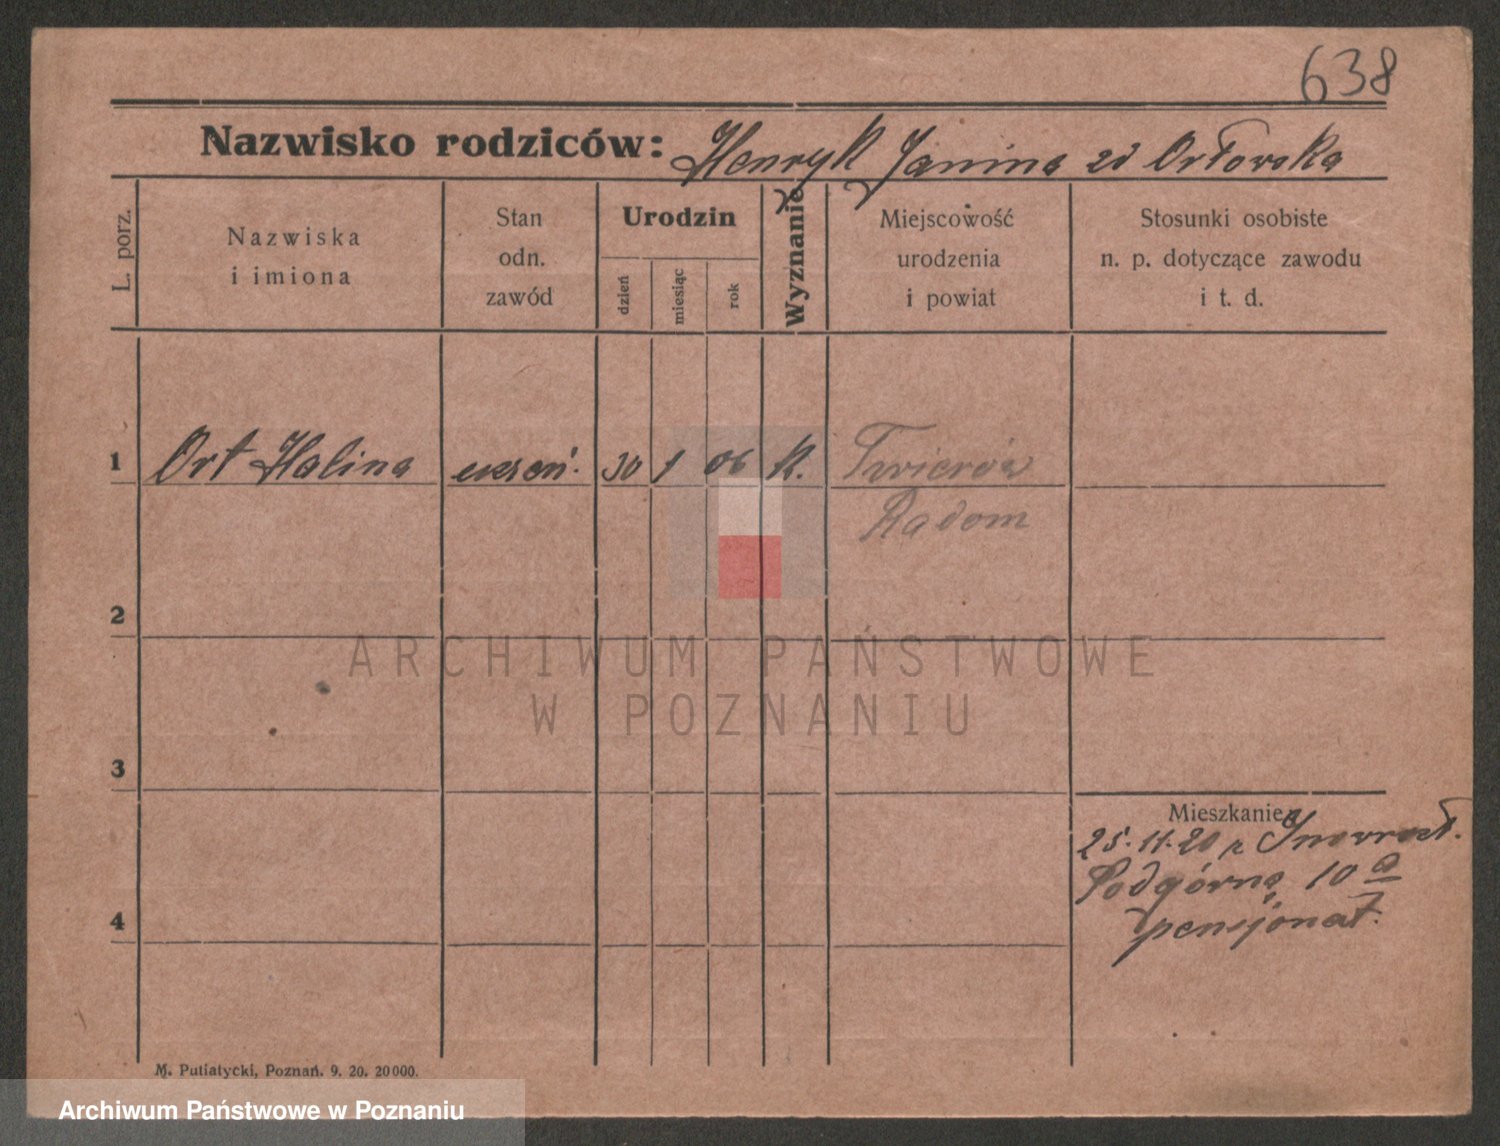 638
Nazwisko rodziców: Henryk Janina zd Orłowska
L. porz.
Nazwiska
i imiona
Stan
odn.
zawód
Urodzin
dzień
miesiąc
rok
Wyznanie
Miejscowość
urodzenia
i powiat
Stosunki osobiste
n. p. dotyczące zawodu
i t. d.
1 Ort Halina uczeń. 30 1 06 K.
Radom
2
3
4
Mieszkanie
25.11.20 z Inowrocł.
Podgórna 10 a
pensjonat.
M. Putiatycki, Poznań. 9. 20. 20000.
ARCHIWUM PAŃSTWOWE
W POZNANIU
Archiwum Państwowe w Poznaniu